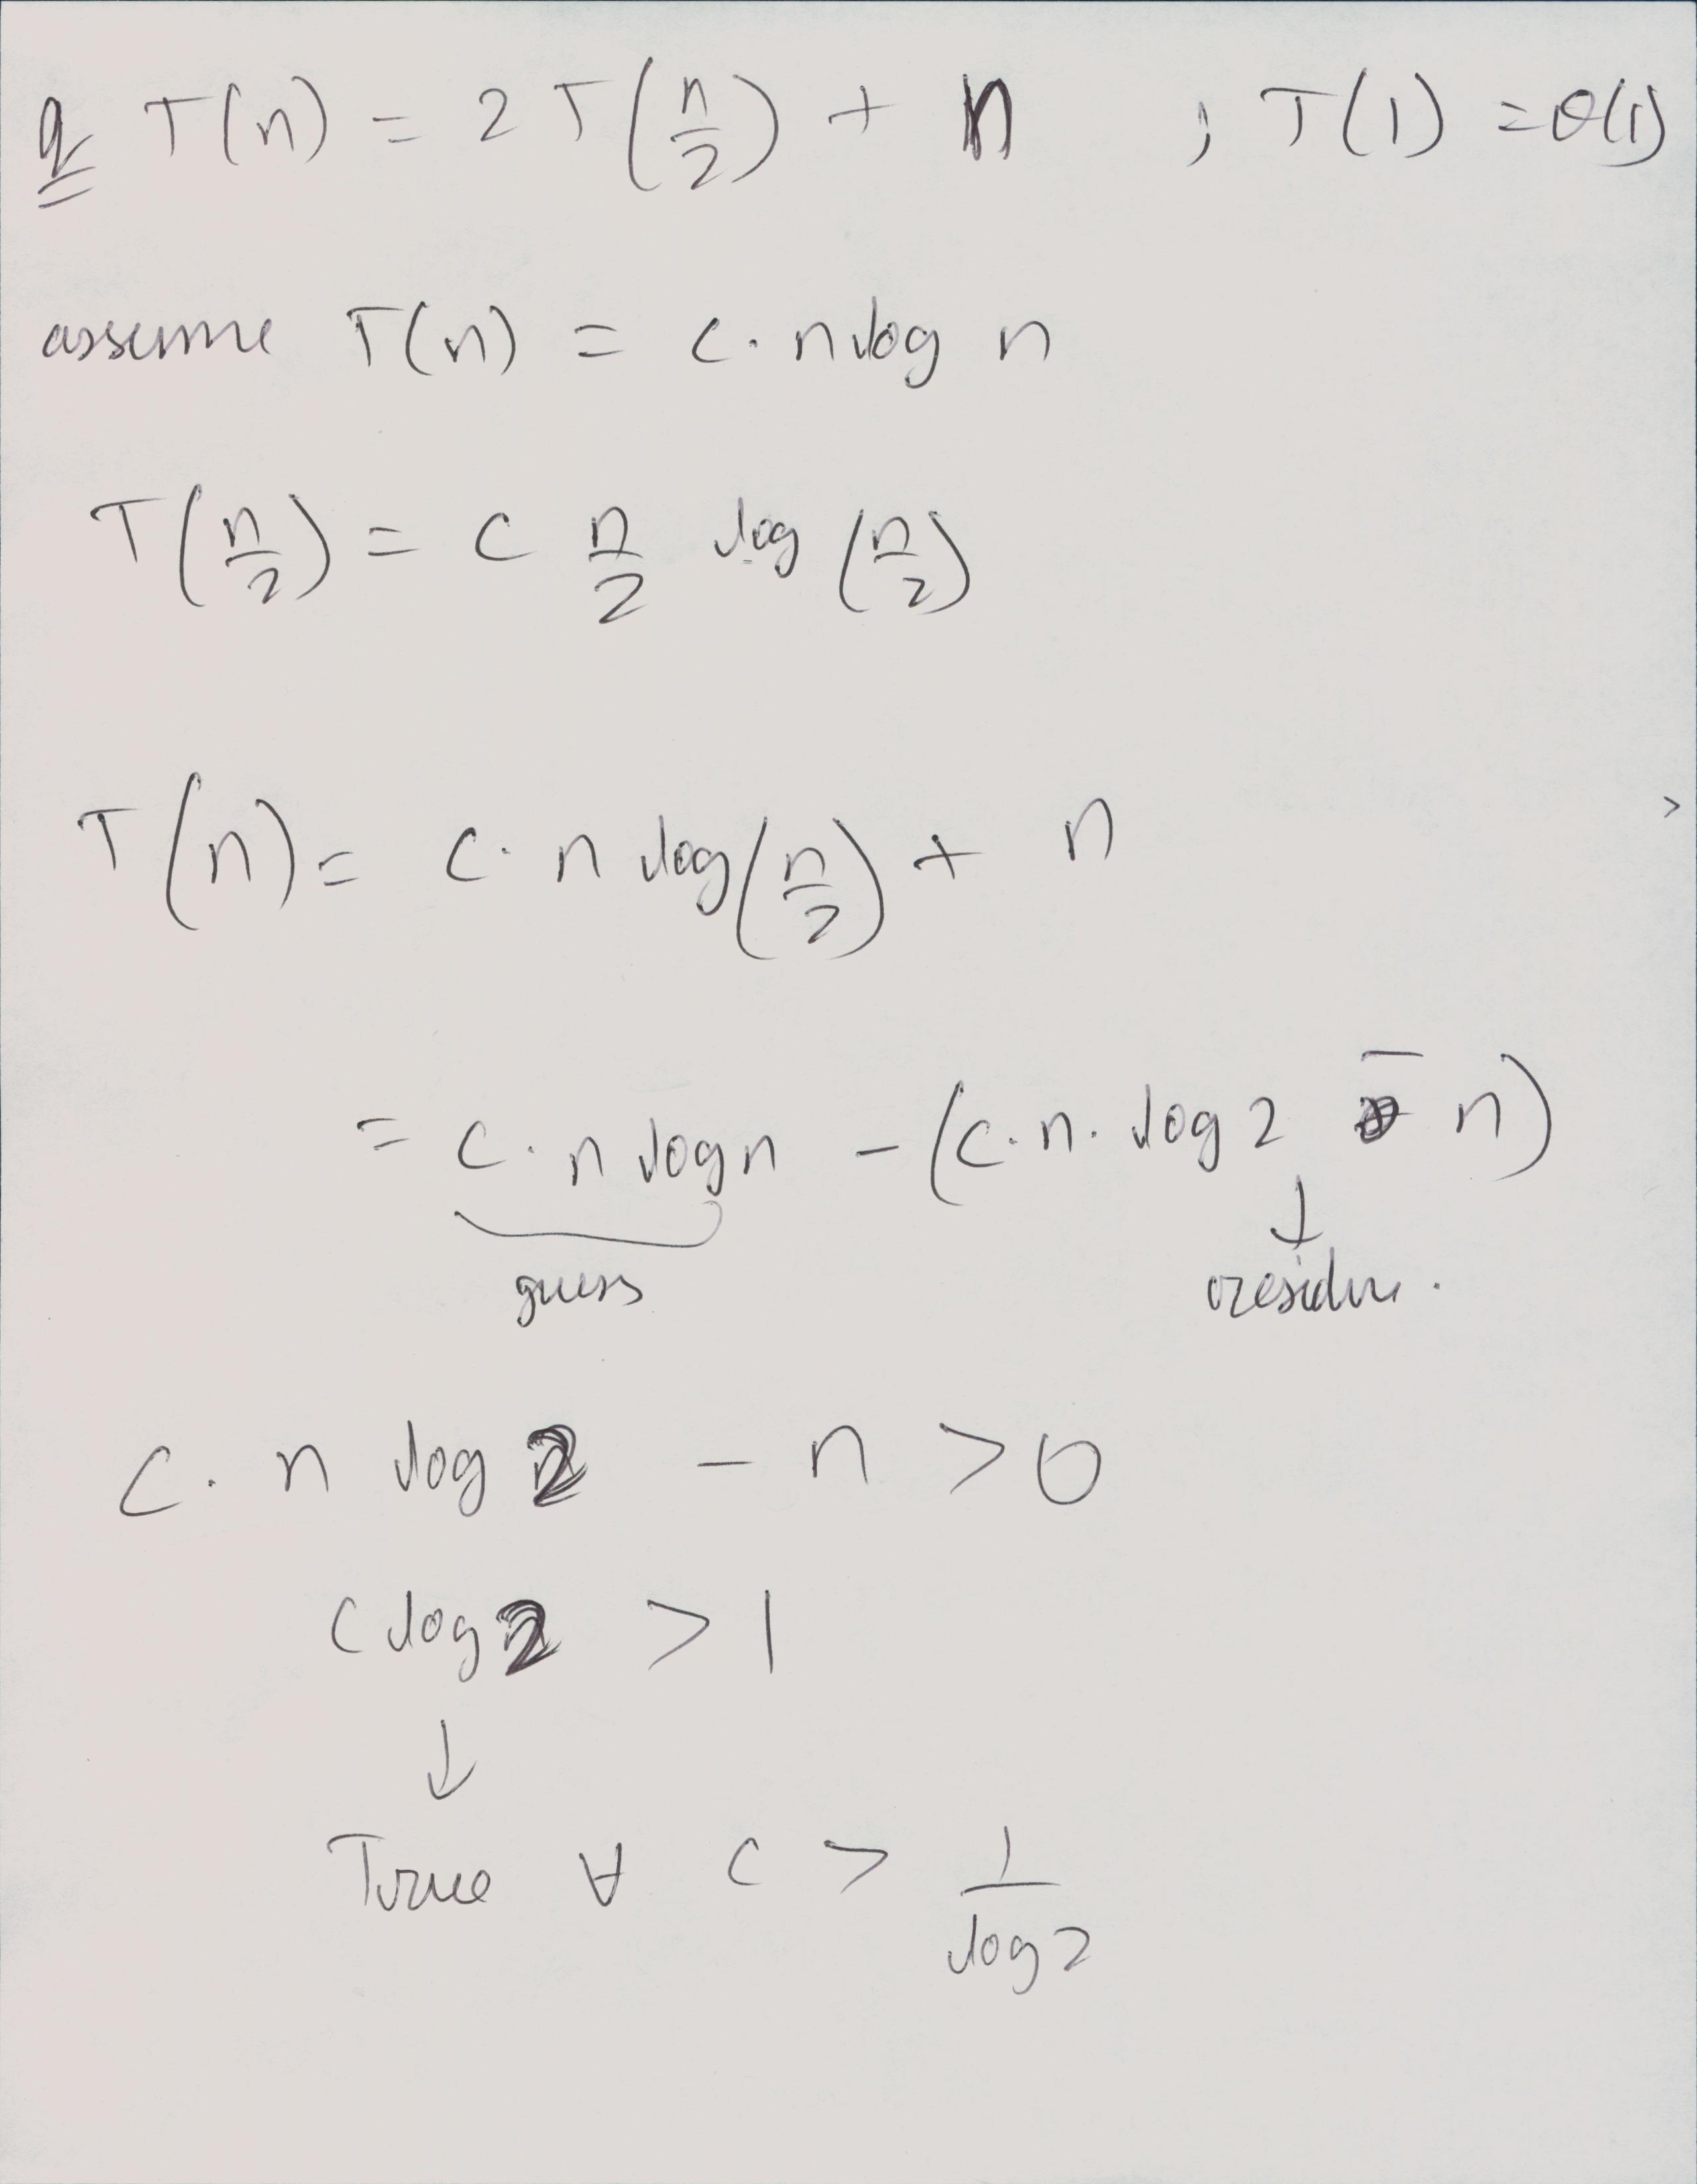 q T(n) = 2 T(n/2) + n ; T(1) = θ(1)
assume T(n) = c. n log n
T(n/2) = c n/2 log (n/2)
T(n) = c. n log(n/2) + n
>
= c. n log n - (c. n. log 2 - n)
↓
guess residue.
c. n log 2 - n > 0
c log 2 > 1
↓
True ∀ c > 1/log 2